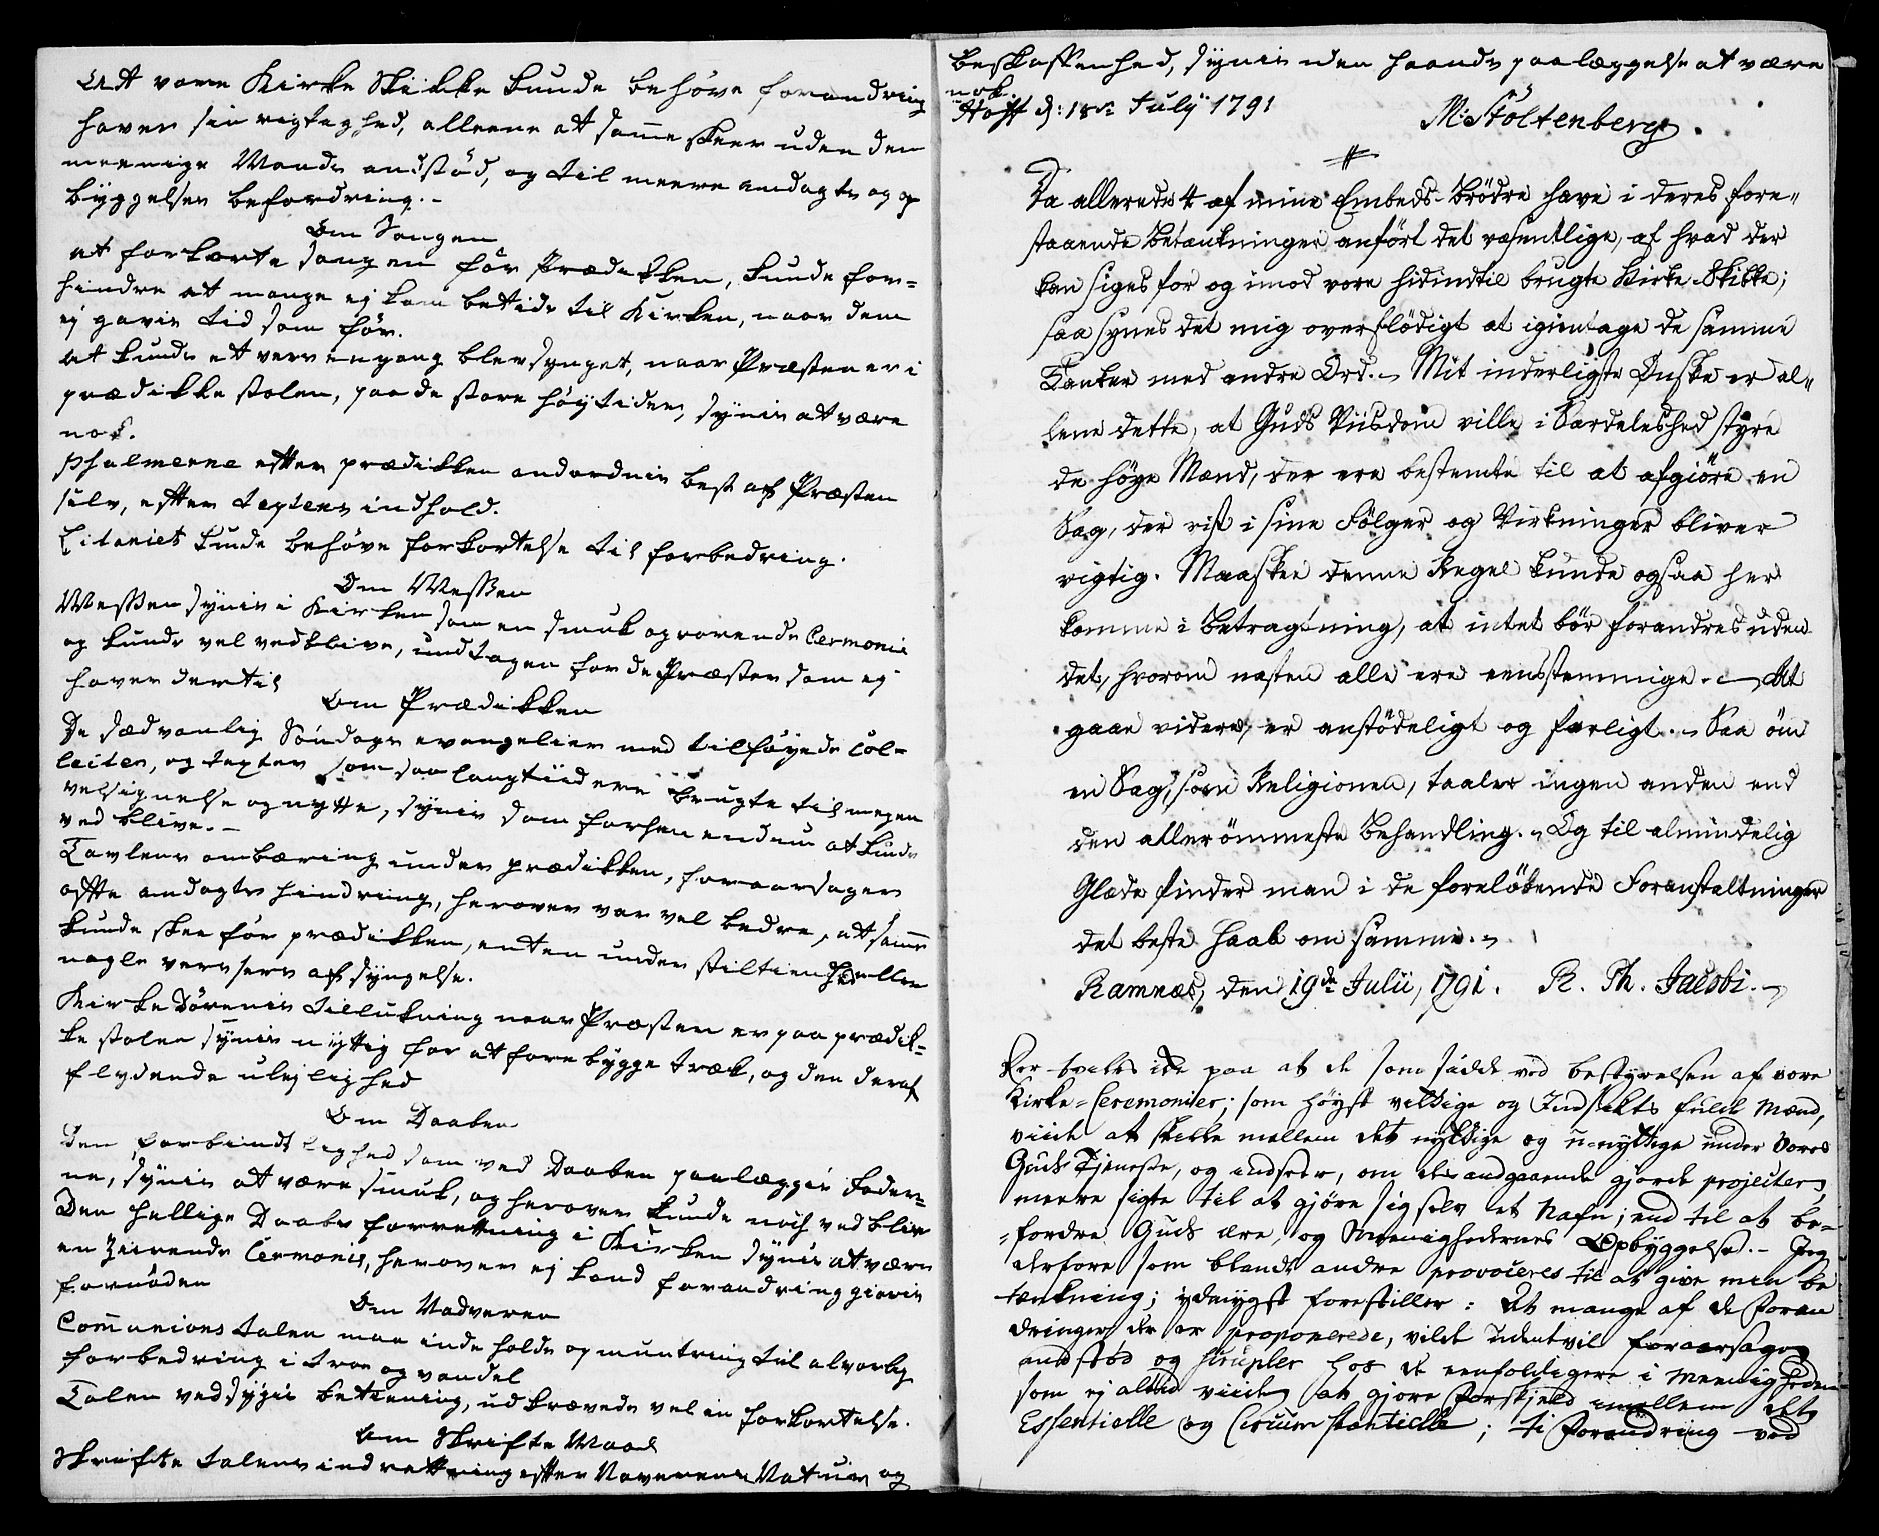 At vore Kirke Skikke kunde behøve forandring
haver sin rigtighed, alleene at samme skeer uden den
meenige Mands anstød, og til meere andagts og op
byggelses befordring. -
Om Sangen
at forkorte sangen før Prædikken, kunde for-
hindre at mange ej kom betids til Kirken, naar dem
ej gaves tid som før.
at kunde et vers engang blev synget, naar Præsten er i
prædikke stolen, paa de store høytider, synes at være
nok.
Psalmerne efter prædikken andordnes best af Præsten
selv, efter textens indhold.
Litaniet kunde behøve forkortelse til forbedring.
Om Messen
Messen synes i Kirken som en smuk og rørende Cermonie
og kunde vel vedblive, undtagen for de Præster som ej
haver dertil
Om Prædikken
De sædvanlig Søndags evangelier med tilføyede Col-
lecter, og texter som saa langt tiidere brugte til megen
velsignelse og nytte, synes som forhen endnu at kunde
ved blive. -
Tavlens ombæring under prædikken, foraarsager
ofte andagts hindring, herover var vel bedre, at samme
kunde skee før prædikken, enten under stiltienhed eller
nogle versers afsyngelse.
Kirke Dørenes tillukning naar Præsten er paa prædik-
ke stolen synes nyttig for at forebygge træk, og den deraf
flydende ulejlighed
Om Daaben
Den forbindtlighed som ved Daaben paalægges Fadder-
ne, synes at være smuk, og herover kunde nok ved bliv
Den hellige Daabs forrettning i Kirken synes at være
en Zirende Cermonie, herover ej kand forandring giøres
fornøden
Om Nadveren
Communions talen maa inde holde opmuntring til alvorlig
forbedring i troe og vandel
Talen ved syges betiening, udkrævede vel en forkortelse.
Om Skrifte Maal
Skrifte talens indrettning efter Naverens Natur og
beskaffenhed, synes uden haands paalæggelse at være
nok.
Hoff d: 18de July 1791
M: Stoltenberg.
Da allerede 4 af mine Embeds-Brødre have i deres fore-
staaende Betænkninger anført det væsentlige, af hvad der
kan siges for og imod vore hidindtil brugte Kirke-Skikke;
saa synes det mig overflødigt at igientage de samme
Tanker med andre Ord. - Mit inderligste Ønske er al-
lene dette, at Guds Viisdom ville i Særdeleshed styre
de høye Mænd, der ere bestemte til at afgiøre en
Sag, der vist i sine Følger og Virkninger bliver
vigtig. Maaskee denne Regel kunde ogsaa her
komme i Betragtning, at intet bør forandres uden
det, hvorom næsten alle ere eensstemmige. - At
gaae videre, er anstødeligt og farligt. - Saa øm
en Sag, som Religionen, taaler ingen anden end
den allerømmeste Behandling. - Og til almindelig
Glæde finder man i de foreløbende Foranstaltninger
det beste Haab om samme. -
Ramnæs, den 19de Julii, 1791. R. Th. Jacobi. -
paa at de som sidde ved bestyrelsen af vore
Kirke-Ceremonier; som høyst vettige og Indsigts fulde Mænd,
viide at skille mellem det nyttige og u-nyttige under vores
Guds Tjeneste, og indseer, om des andgaaende gjorde projecter,
meere sigte til at gjøre sig selv et Nafn; end til at be-
fordre Guds ære, og Meenighedernes Opbyggelse. - Jeg
derfore som blandt andre provoceres til at give min be
tænkning; ydmygst forestiller: At mange af de Foran
dringer der er proponerede, vilde uden tvil foraarsage
andstød og scrupler hos de eenfoldigere i Meenigheden
som ej altid viide at gjøre Forskjeld imellem det
Essentielle og Circumstantielle; ti Forandring ved